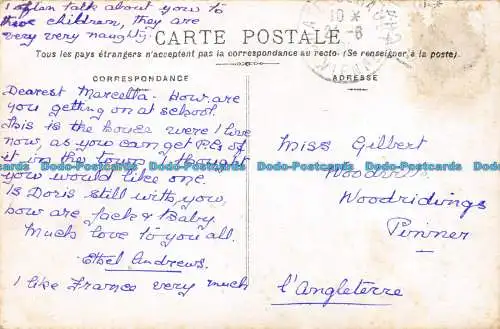 I often talk about you to
these children, they are
very very naughty.
CARTE POSTALE
Tous les pays étrangers n'acceptent pas la correspondance au recto. (Se renseigner à la poste).
CORRESPONDANCE
Dearest Marcella. How are
you getting on at school.
This is the house were I live
now, as you can get P.Cs of
it in the town I thought
you would like one.
Is Doris still with you,
how are Jack & Baby.
Much love to you all.
Ethel Andrews.
I like France very much
ADRESSE
Miss Gilbert
Woodridings
Pinner
l'Angleterre
10 *
-6
Dodo-Postcards Dodo-Postcards Dodo-Postcards Dodo-Postcards Dodo-Postcards